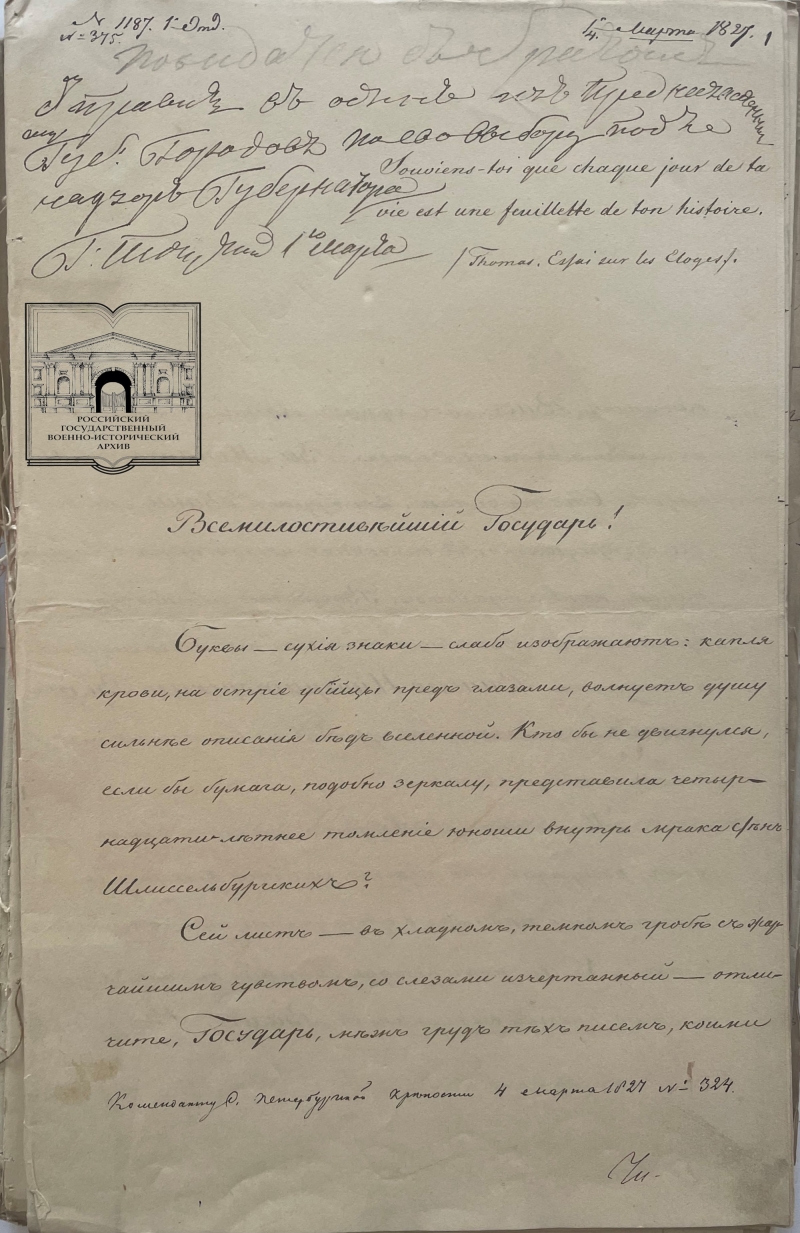 № 1187. 1е Отд.
№ 375.
4. Марта 1827. 1
повидаться съ братомъ
Отправить въ однѣ изъ предназначенныхъ
Губ. Городовъ по его выбору подъ
надзоръ Губернатора
Souviens-toi que chaque jour de ta
vie est une feuillette de ton histoire.
1го Марта
/Thomas. Essai sur les Eloges/.
РОССИЙСКИЙ
ГОСУДАРСТВЕННЫЙ
ВОЕННО-ИСТОРИЧЕСКИЙ
АРХИВ
Всемилостивѣйшій Государь!
Буквы — сухія знаки — слабо изображаютъ: капля
крови, на остріе убійцы предъ глазами, волнуетъ душу
сильнѣе описанія бѣдъ вселенной. Кто бы не двигнулся,
если бы бумага, подобно зеркалу, представила четыр-
надцати-лѣтнее томленіе юноши внутрь мрака стѣнъ
Шлиссельбургскихъ?
Сей листъ — въ хладномъ, темномъ гробѣ съ жар-
чайшимъ чувствомъ, со слезами изчертанный — отли-
чите, Государь, мѣжъ грудъ тѣхъ писемъ, коими
Коменданту С. Петербургской крѣпости 4 марта 1827 № 324.